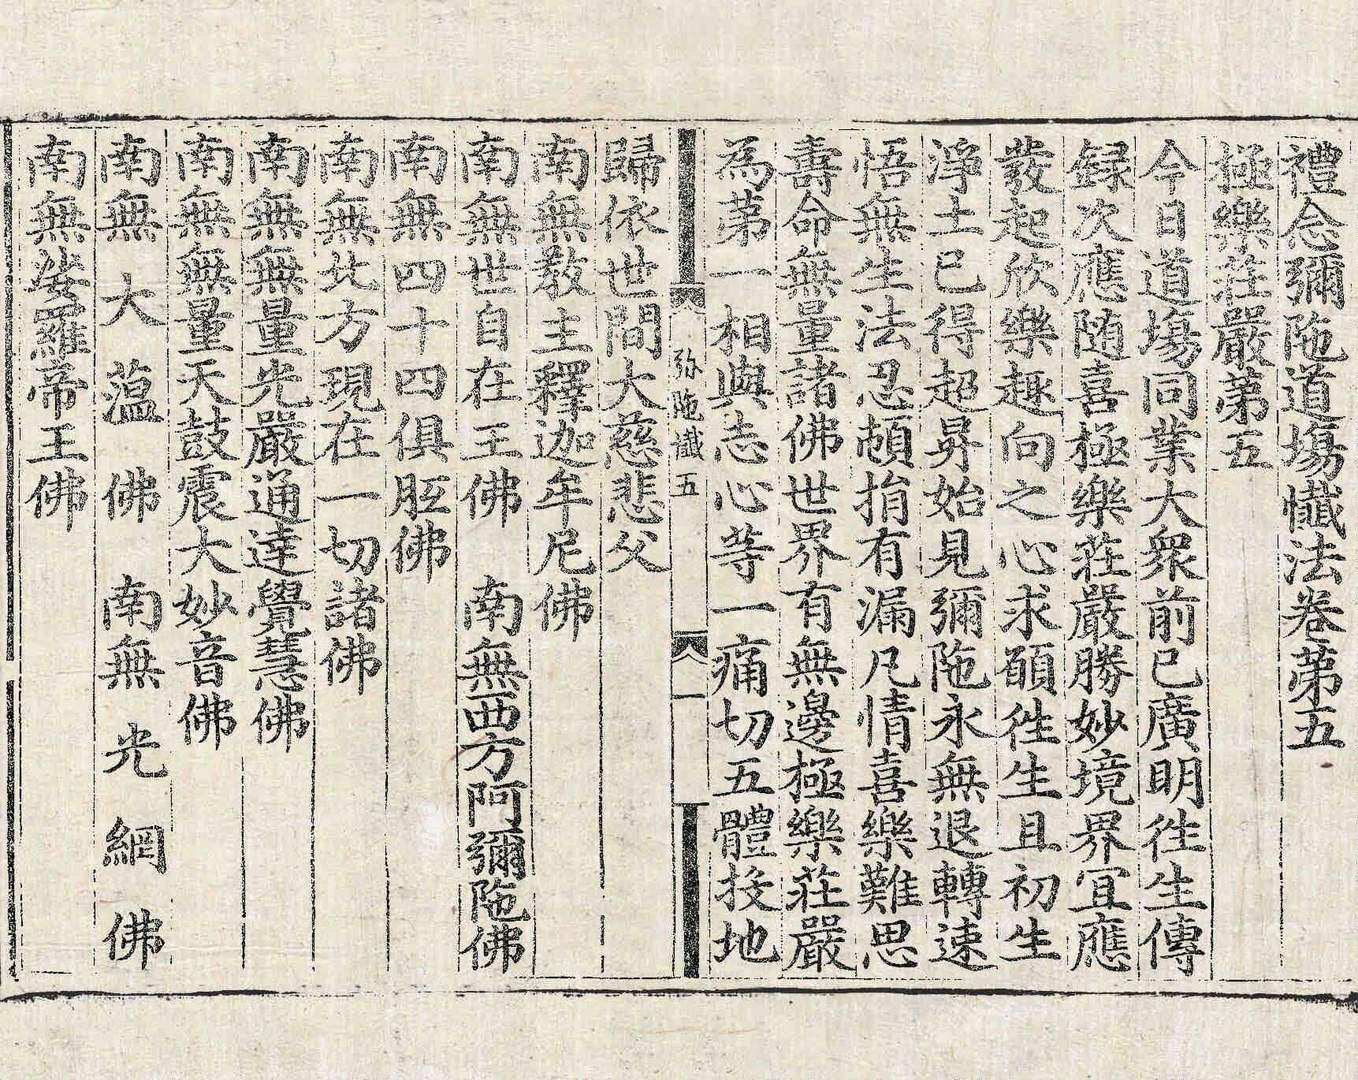 禮念彌陁道塲懺法卷第五
極樂莊嚴第五
今日道塲同業大衆前已廣明徃生傳
録次應随喜極樂莊嚴勝妙境界宜應
發起欣樂趣向之心求願徃生且初生
淨土已得超昇始見彌陁永無退轉速
悟無生法忍頓捐有漏凡情喜樂難思
壽命無量諸佛世界有無邊極樂莊嚴
為第一相與志心等一痛切五體投地
弥陁懺五 一
歸依世間大慈悲父
南無教主釋迦牟尼佛
南無世自在王佛 南無西方阿彌陁佛
南無四十四俱胝佛
南無北方現在一切諸佛
南無無量光嚴通達覺慧佛
南無無量天鼓震大妙音佛
南無大薀佛 南無光網佛
南無娑羅帝王佛